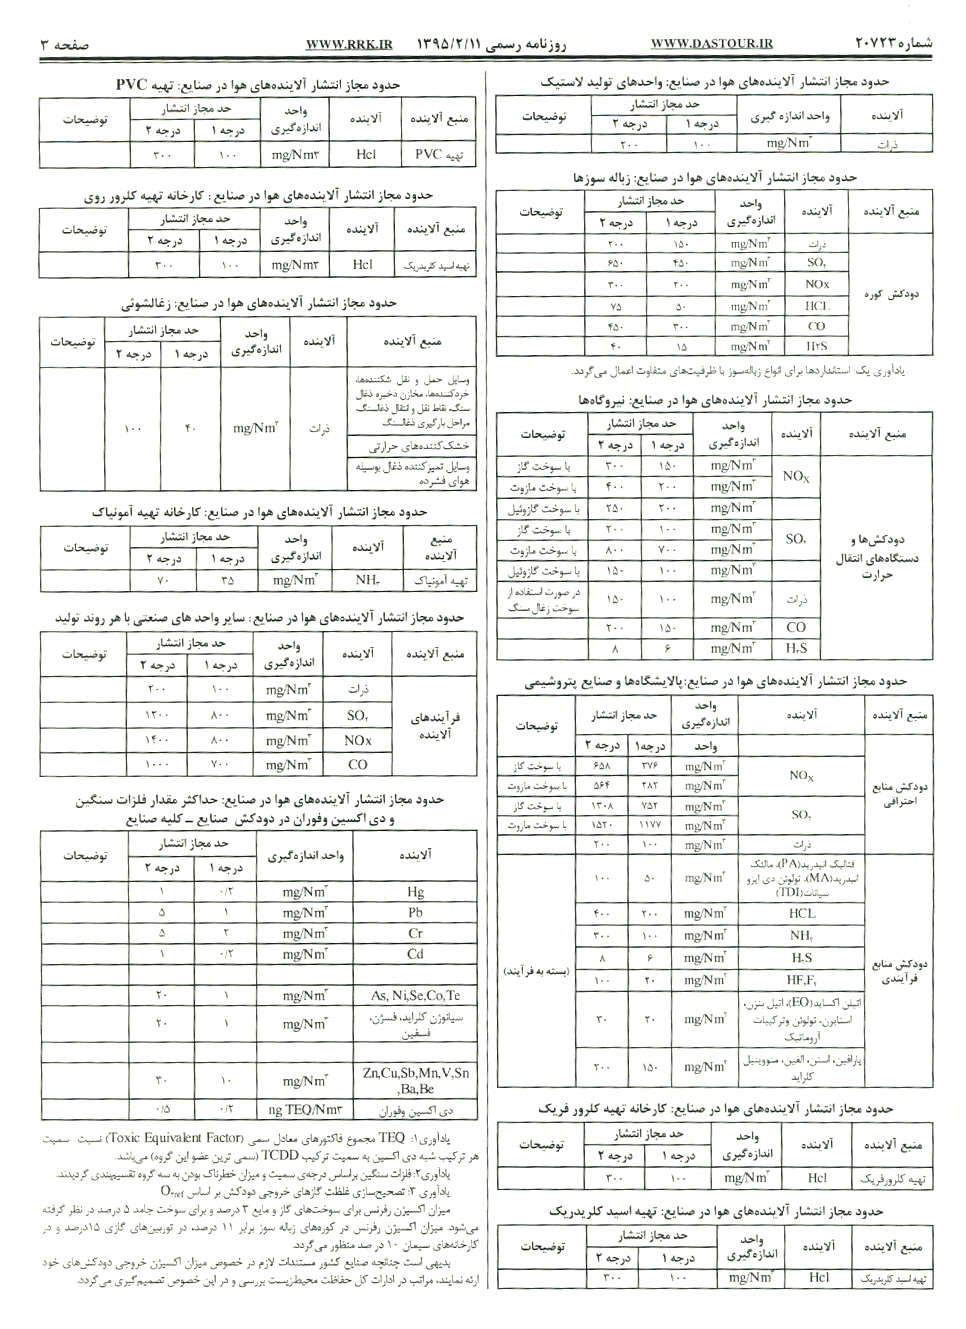 شماره۲۰۷۲۳
WWW.DASTOUR.IR
روزنامه رسمی ۱۳۹۵/۲/۱۱
WWW.RRK.IR
صفحه ۳
حدود مجاز انتشار آلاینده‌های هوا در صنایع: واحدهای تولید لاستیک
آلاینده واحد اندازه گیری حد مجاز انتشار توضیحات
درجه ۱ درجه ۲
ذرات mg/Nm³ ۱۰۰ ۲۰۰
حدود مجاز انتشار آلاینده‌های هوا در صنایع: زباله سوزها
منبع آلاینده آلاینده واحد اندازه‌گیری حد مجاز انتشار توضیحات
درجه ۱ درجه ۲
دودکش کوره
ذرات mg/Nm³ ۱۵۰ ۲۰۰
SO₂ mg/Nm³ ۴۵۰ ۶۵۰
NOx mg/Nm³ ۲۰۰ ۳۰۰
HCL mg/Nm³ ۵۰ ۷۵
CO mg/Nm³ ۳۰۰ ۴۵۰
H۲S mg/Nm³ ۱۵ ۴۰
یادآوری یک: استانداردها برای انواع زباله‌سوز با ظرفیت‌های متفاوت اعمال می‌گردد.
حدود مجاز انتشار آلاینده‌های هوا در صنایع: نیروگاه‌ها
منبع آلاینده آلاینده واحد اندازه‌گیری حد مجاز انتشار توضیحات
درجه ۱ درجه ۲
دودکش‌ها و دستگاه‌های انتقال حرارت
NOX mg/Nm³ ۱۵۰ ۳۰۰ با سوخت گاز
mg/Nm³ ۲۰۰ ۴۰۰ با سوخت مازوت
mg/Nm³ ۲۰۰ ۲۵۰ با سوخت گازوئیل
SO₂ mg/Nm³ ۱۰۰ ۲۰۰ با سوخت گاز
mg/Nm³ ۷۰۰ ۸۰۰ با سوخت مازوت
mg/Nm³ ۱۰۰ ۱۵۰ با سوخت گازوئیل
ذرات mg/Nm³ ۱۰۰ ۱۵۰ در صورت استفاده از سوخت زغال سنگ
CO mg/Nm³ ۱۵۰ ۲۰۰
H₂S mg/Nm³ ۶ ۸
حدود مجاز انتشار آلاینده‌های هوا در صنایع:پالایشگاه‌ها و صنایع پتروشیمی
منبع آلاینده آلاینده واحد اندازه‌گیری حد مجاز انتشار توضیحات
واحد درجه۱ درجه ۲
دودکش منابع احتراقی
NOX mg/Nm³ ۳۷۶ ۶۵۸ با سوخت گاز
mg/Nm³ ۲۸۲ ۵۶۴ با سوخت مازوت
SO₂ mg/Nm³ ۷۵۲ ۱۳۰۸ با سوخت گاز
mg/Nm³ ۱۱۷۷ ۱۵۲۰ با سوخت مازوت
ذرات mg/Nm³ ۱۰۰ ۲۰۰
دودکش منابع فرآیندی
(بسته به فرآیند)
فتالیک انیدرید(PA)، مالئیک انیدرید(MA)، تولوئن دی ایزو سیانات(TDI) mg/Nm³ ۵۰ ۱۰۰
HCL mg/Nm³ ۲۰۰ ۴۰۰
NH₃ mg/Nm³ ۱۰۰ ۳۰۰
H₂S mg/Nm³ ۶ ۸
HF,F₂ mg/Nm³ ۲۰ ۱۰۰
اتیلن اکساید(EO)، اتیل بنزن، استایرن، تولوئن وترکیبات آروماتیک mg/Nm³ ۲۰ ۳۰
پارافین، استن، الفین، منووینیل کلراید mg/Nm³ ۱۵۰ ۲۰۰
حدود مجاز انتشار آلاینده‌های هوا در صنایع: کارخانه تهیه کلرور فریک
منبع آلاینده آلاینده واحد اندازه‌گیری حد مجاز انتشار توضیحات
درجه ۱ درجه ۲
تهیه کلرورفریک Hcl mg/Nm³ ۱۰۰ ۳۰۰
حدود مجاز انتشار آلاینده‌های هوا در صنایع: تهیه اسید کلریدریک
منبع آلاینده آلاینده واحد اندازه‌گیری حد مجاز انتشار توضیحات
درجه ۱ درجه ۲
تهیه اسید کلریدریک Hcl mg/Nm³ ۱۰۰ ۳۰۰
حدود مجاز انتشار آلاینده‌های هوا در صنایع: تهیه PVC
منبع آلاینده آلاینده واحد اندازه‌گیری حد مجاز انتشار توضیحات
درجه ۱ درجه ۲
تهیه PVC Hcl mg/Nm۳ ۱۰۰ ۳۰۰
حدود مجاز انتشار آلاینده‌های هوا در صنایع : کارخانه تهیه کلرور روی
منبع آلاینده آلاینده واحد اندازه‌گیری حد مجاز انتشار توضیحات
درجه ۱ درجه ۲
تهیه اسید کلریدریک Hcl mg/Nm۳ ۱۰۰ ۳۰۰
حدود مجاز انتشار آلاینده‌های هوا در صنایع: زغالشوئی
منبع آلاینده آلاینده واحد اندازه‌گیری حد مجاز انتشار توضیحات
درجه ۱ درجه ۲
وسایل حمل و نقل شکننده‌ها، خردکننده‌ها، مخازن ذخیره ذغال سنگ، نقاط نقل و انتقال ذغالسنگ، مراحل بارگیری ذغالسنگ
خشک‌کننده‌های حرارتی
وسایل تمیزکننده ذغال بوسیله هوای فشرده
ذرات mg/Nm³ ۴۰ ۱۰۰
حدود مجاز انتشار آلاینده‌های هوا در صنایع: کارخانه تهیه آمونیاک
منبع آلاینده آلاینده واحد اندازه‌گیری حد مجاز انتشار توضیحات
درجه ۱ درجه ۲
تهیه آمونیاک NH₃ mg/Nm³ ۳۵ ۷۰
حدود مجاز انتشار آلاینده‌های هوا در صنایع: سایر واحد های صنعتی با هر روند تولید
منبع آلاینده آلاینده واحد اندازه‌گیری حد مجاز انتشار توضیحات
درجه ۱ درجه ۲
فرآیندهای آلاینده
ذرات mg/Nm³ ۱۰۰ ۲۰۰
SO₂ mg/Nm³ ۸۰۰ ۱۲۰۰
NOx mg/Nm³ ۸۰۰ ۱۴۰۰
CO mg/Nm³ ۷۰۰ ۱۰۰۰
حدود مجاز انتشار آلاینده‌های هوا در صنایع: حداکثر مقدار فلزات سنگین
و دی اکسین وفوران در دودکش صنایع ــ کلیه صنایع
آلاینده واحد اندازه‌گیری حد مجاز انتشار توضیحات
درجه ۱ درجه ۲
Hg mg/Nm³ ۰/۲ ۱
Pb mg/Nm³ ۱ ۵
Cr mg/Nm³ ۲ ۵
Cd mg/Nm³ ۰/۲ ۱
As, Ni,Se,Co,Te mg/Nm³ ۱ ۲۰
سیانوژن کلراید، فسژن، فسفین mg/Nm³ ۱ ۲۰
Zn,Cu,Sb,Mn,V,Sn ,Ba,Be mg/Nm³ ۱۰ ۳۰
دی اکسین وفوران ng TEQ/Nm۳ ۰/۲ ۰/۵
یادآوری۱: TEQ مجموع فاکتورهای معادل سمی (Toxic Equivalent Factor) نسبت سمیت
هر ترکیب شبه دی اکسین به سمیت ترکیب TCDD (سمی ترین عضو این گروه) می‌باشد.
یادآوری۲: فلزات سنگین براساس درجه‌ی سمیت و میزان خطرناک بودن به سه گروه تقسیم‌بندی گردیدند.
یادآوری ۳: تصحیح‌سازی غلظت گازهای خروجی دودکش بر اساس O₂ref
میزان اکسیژن رفرنس برای سوخت‌های گاز و مایع ۳ درصد و برای سوخت جامد ۵ درصد در نظر گرفته
می‌شود. میزان اکسیژن رفرنس در کوره‌های زباله سوز برابر ۱۱ درصد، در توربین‌های گازی ۱۵درصد و در
کارخانه‌های سیمان ۱۰ در صد منظور می‌گردد.
بدیهی است چنانچه صنایع کشور مستندات لازم در خصوص میزان اکسیژن خروجی دودکش‌های خود
ارئه نمایند، مراتب در ادارات کل حفاظت محیط‌زیست بررسی و در این خصوص تصمیم‌گیری می‌گردد.